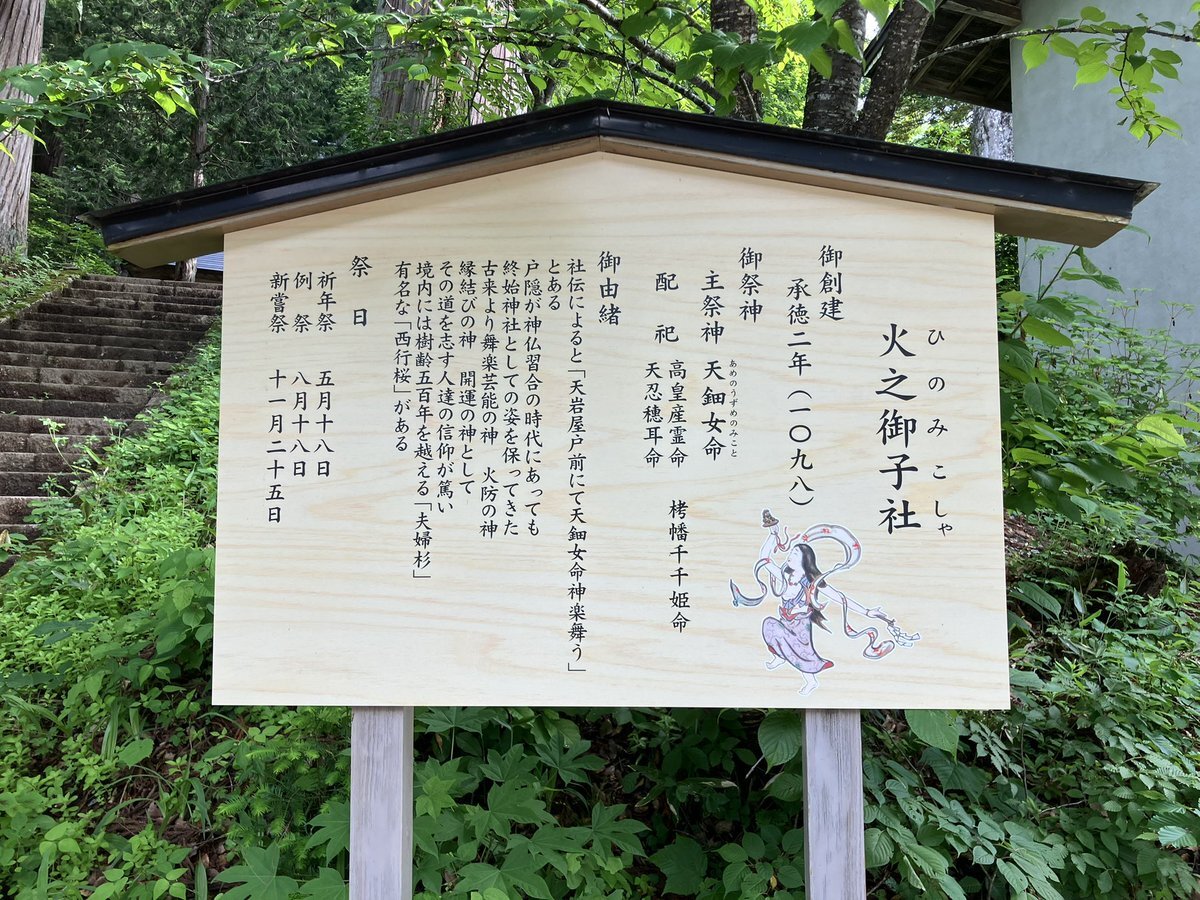 ひのみこしゃ
火之御子社
御創建
承徳二年（一〇九八）
御祭神
あめのうずめのみこと
主祭神 天鈿女命
配祀 高皇産霊命 栲幡千千姫命
天忍穂耳命
御由緒
社伝によると「天岩屋戸前にて天鈿女命神楽舞う」
とある
戸隠が神仏習合の時代にあっても
終始神社としての姿を保ってきた
古来より舞楽芸能の神 火防の神
縁結びの神 開運の神として
その道を志す人達の信仰が篤い
境内には樹齢五百年を越える「夫婦杉」
有名な「西行桜」がある
祭日
祈年祭 五月十八日
例祭 八月十八日
新嘗祭 十一月二十五日